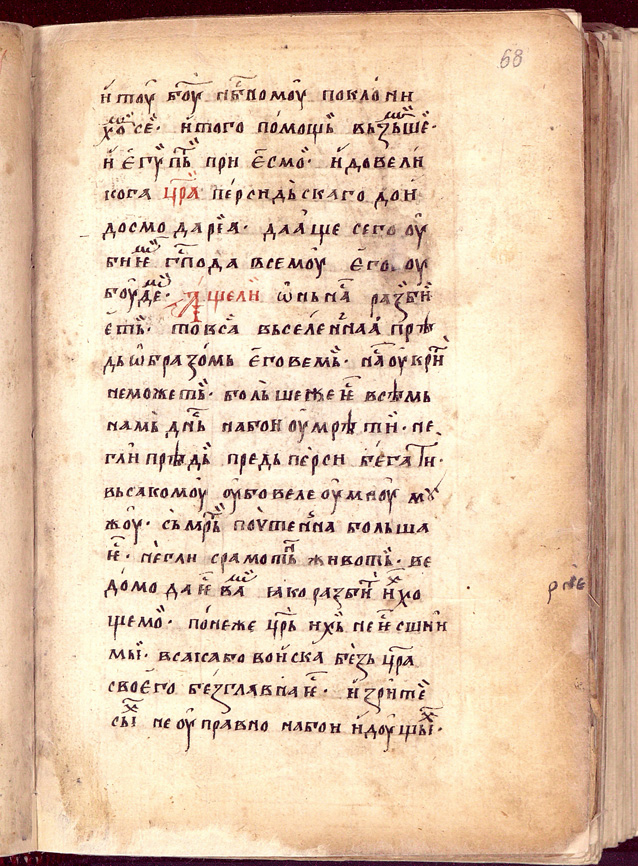 68
и томоу бг҃оу нб҃номоу поклони
хѡм се· и того помощь възеше·
и єгѵптꙋ при єсмо· и до вели
кога цр҃а персидьскаго дои
досмо дарїа· даа҆ще сего оу
биїем господа всемоу єго· оу
боудем· А҆ще ли ѡ҆нь на разбїи
єть· то вса въселеннаа прѣ
дь ѡ҆бразомь єго вемь· на оукрїи
не може ть· болше же є҆ всѣмь
намь днь на бои оумрѣти· не
гли прѣдь предь перси бегати·
въсакомоу оубо велеоумноу мꙋ
жоу· съмрть поутенна болша
є҆· негли срамотнь животь· ве
домо да є҆ вам ꙗко разбїи их хо
щемо· понеже цр҃ь ихь не є҆ с ними
мы· всака бо воиска безь цр҃а
своєго безглавна є҆· и зрите
сых не оуправно на бои идоущых·
рпе